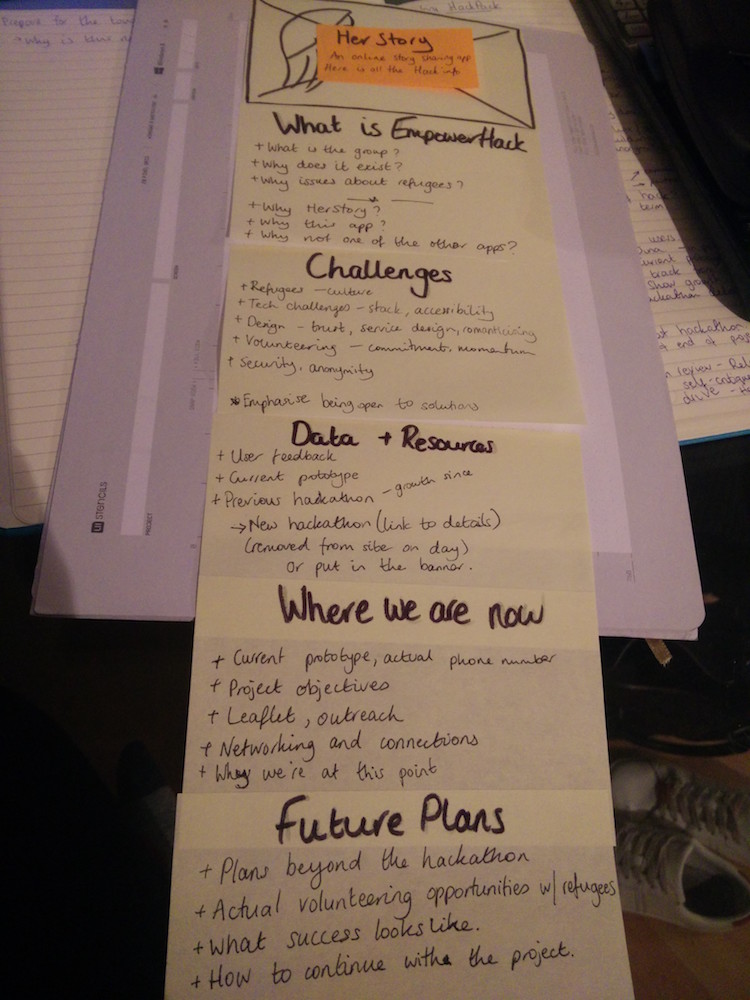 Her Story
An online story sharing app
Here is all the Hack info
What is EmpowerHack
+ What is the group?
+ Why does it exist?
+ Why issues about refugees?
+ Why HerStory?
+ Why this app?
+ Why not one of the other apps?
Challenges
+ Refugees - culture
+ Tech challenges - stack, accessibility
+ Design - trust, service design, romanticising
+ Volunteering - commitment, momentum
+ Security, anonymity
* Emphasise being open to solutions
Data + Resources
+ User feedback
+ Current prototype
+ Previous hackathon - growth since
→ New hackathon (link to details)
(removed from site on day)
or put in the banner.
Where we are now
+ Current prototype, actual phone number
+ Project objectives
+ Leaflet, outreach
+ Networking and connections
+ Why we're at this point
Future Plans
+ Plans beyond the hackathon
+ Actual volunteering opportunities w/ refugees
+ What success looks like.
+ How to continue with the project.
UI STENCILS
PROJECT
Prepare for the
Why is this
hackathon